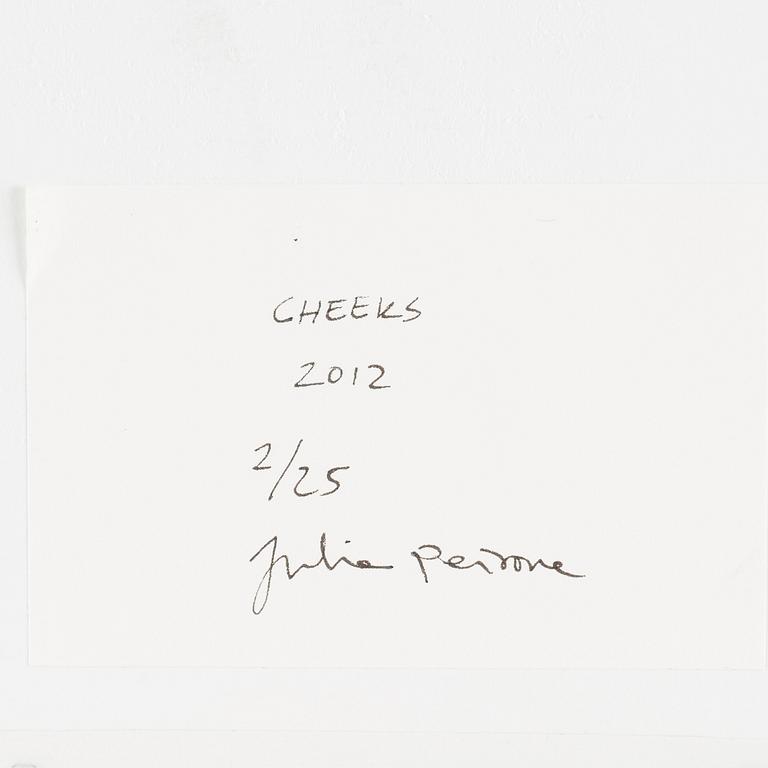 CHEEKS
2012
2/25
Julia Peirone